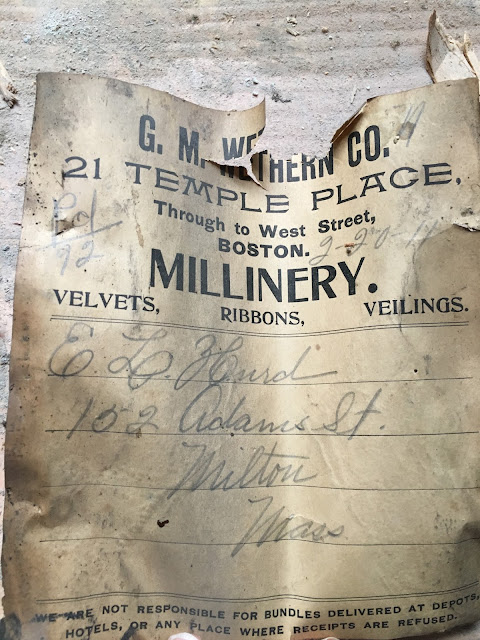 G. M. WETHERN CO.
21 TEMPLE PLACE,
Through to West Street,
BOSTON.
MILLINERY.
VELVETS, RIBBONS, VEILINGS.
E. L. Hurd
152 Adams St.
Milton
Mass
WE ARE NOT RESPONSIBLE FOR BUNDLES DELIVERED AT DEPOTS,
HOTELS, OR ANY PLACE WHERE RECEIPTS ARE REFUSED.